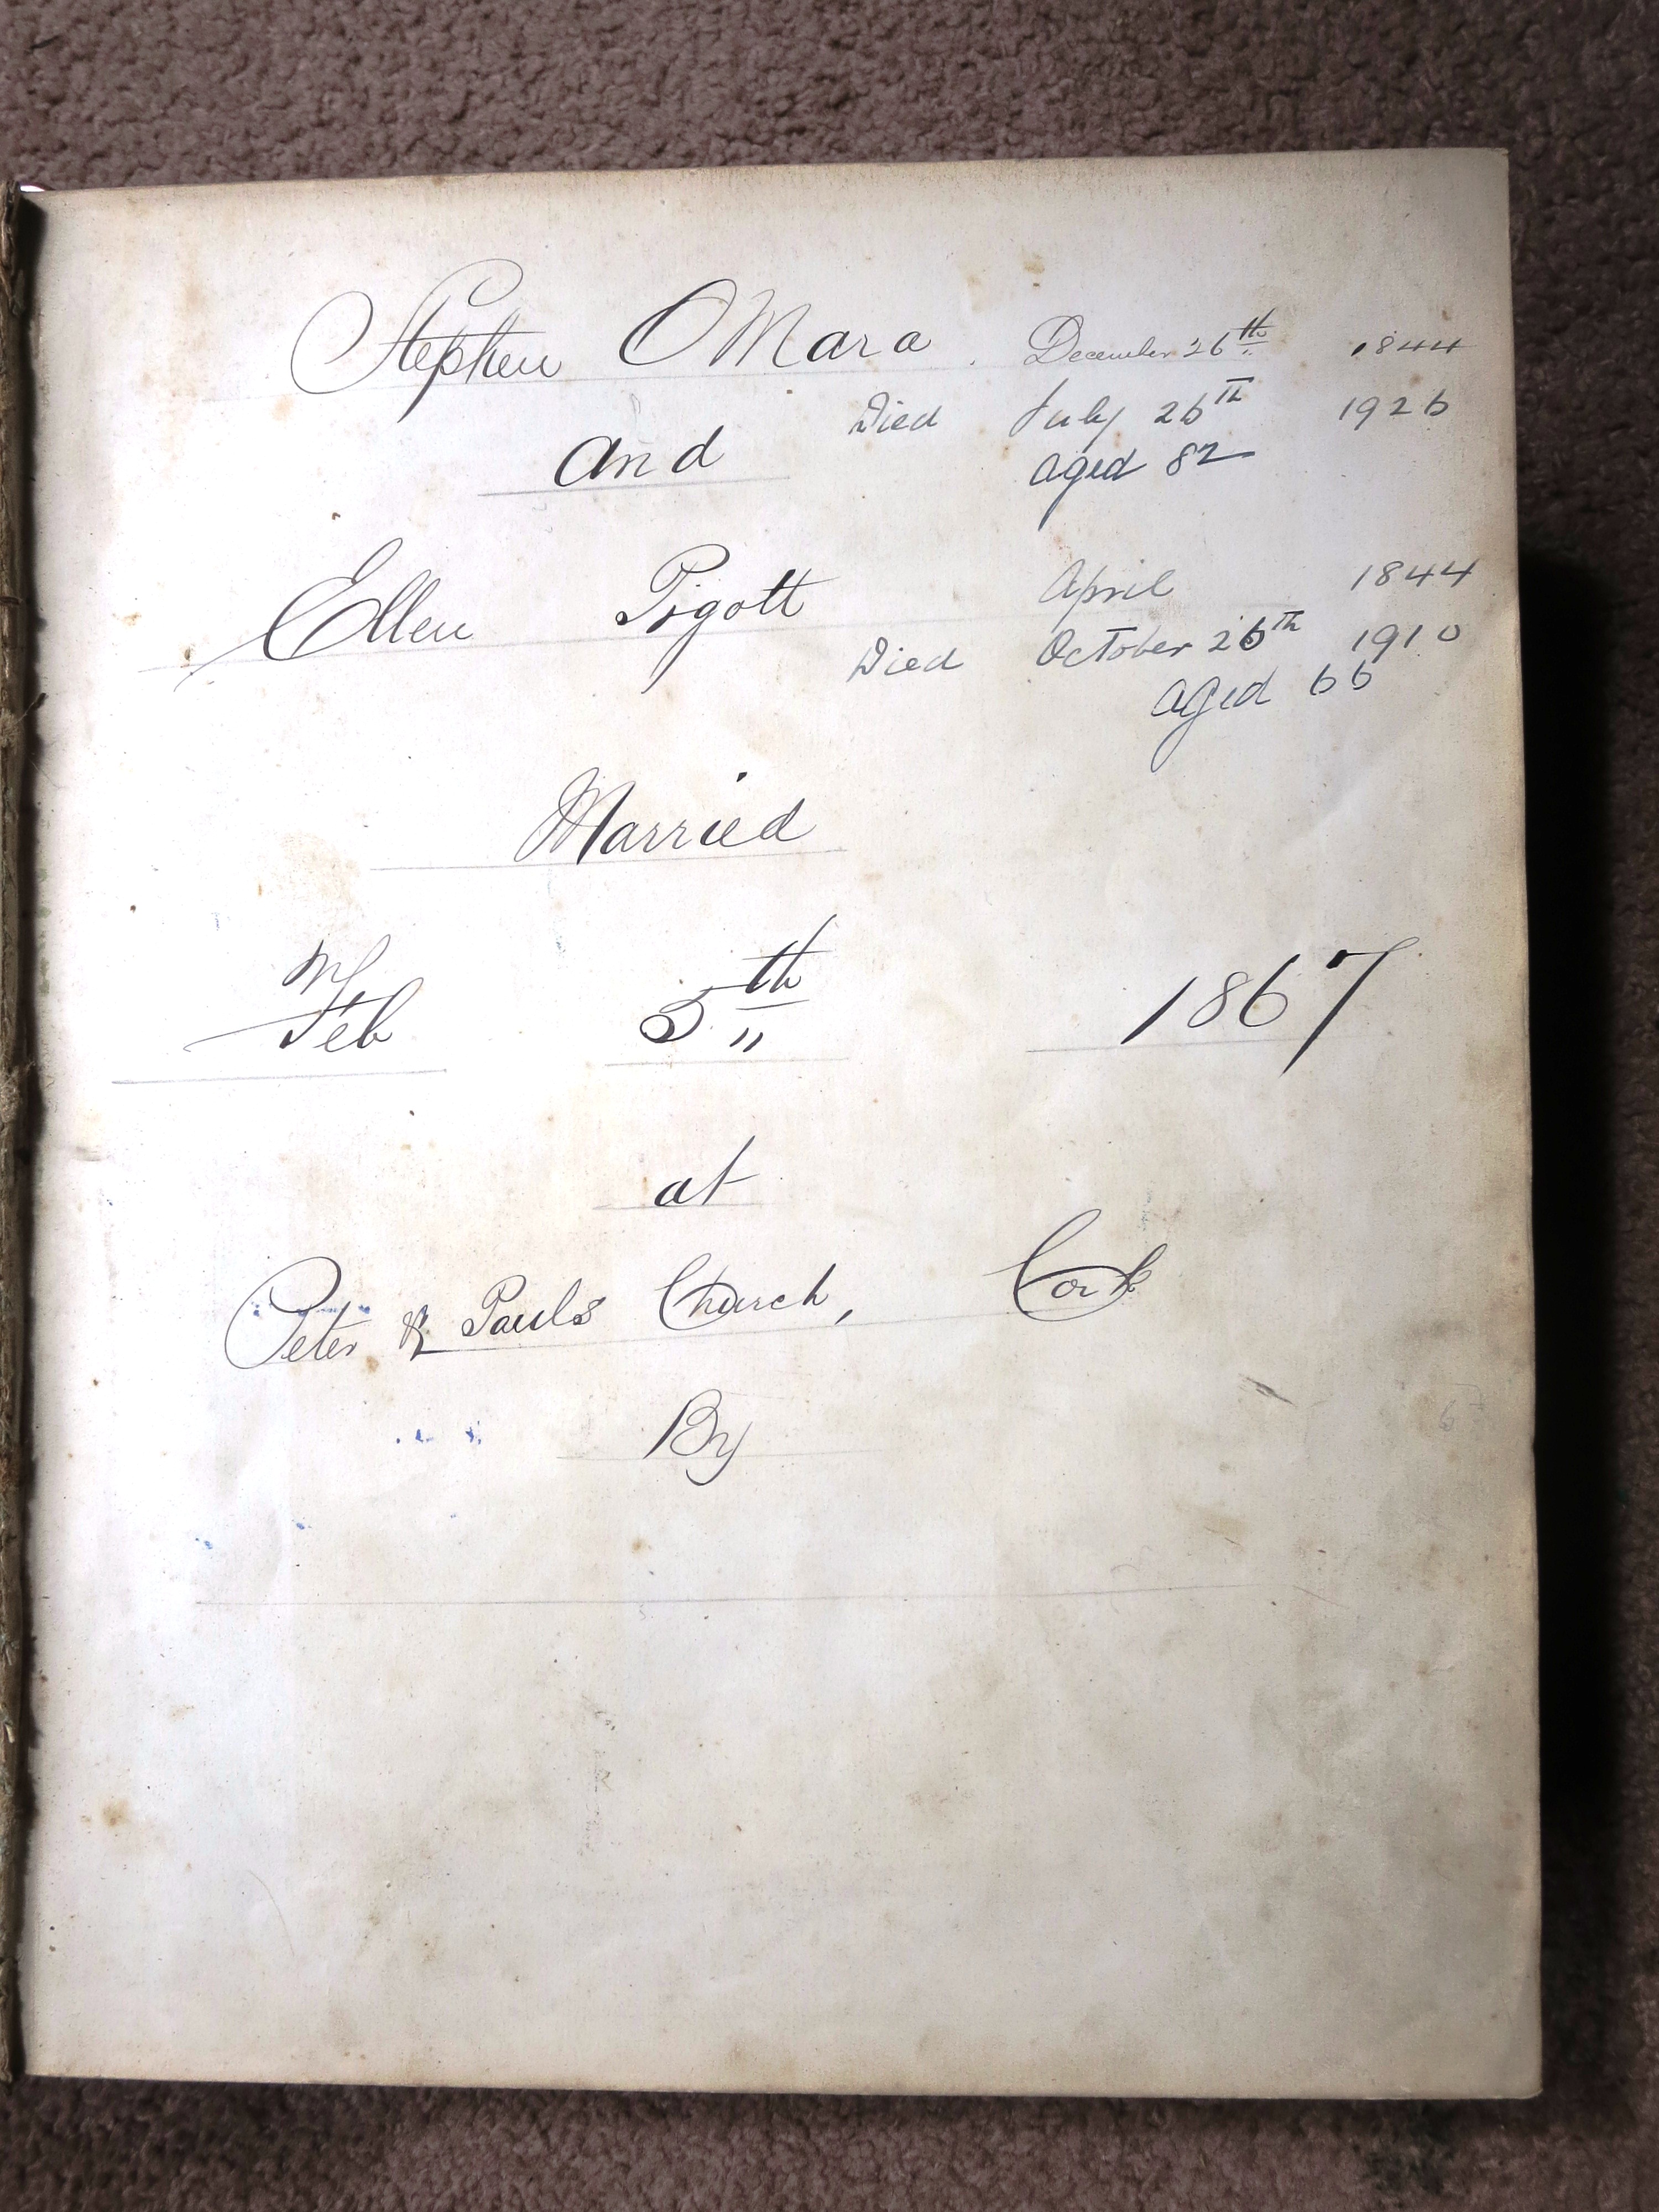 Stephen OMara. December 26th 1844
Died July 26th 1926
and
aged 82
Ellen Pigott April 1844
Died October 26th 1910
aged 66
Married
Feb 5th 1867
at
Peter & Pauls Church, Cork
By